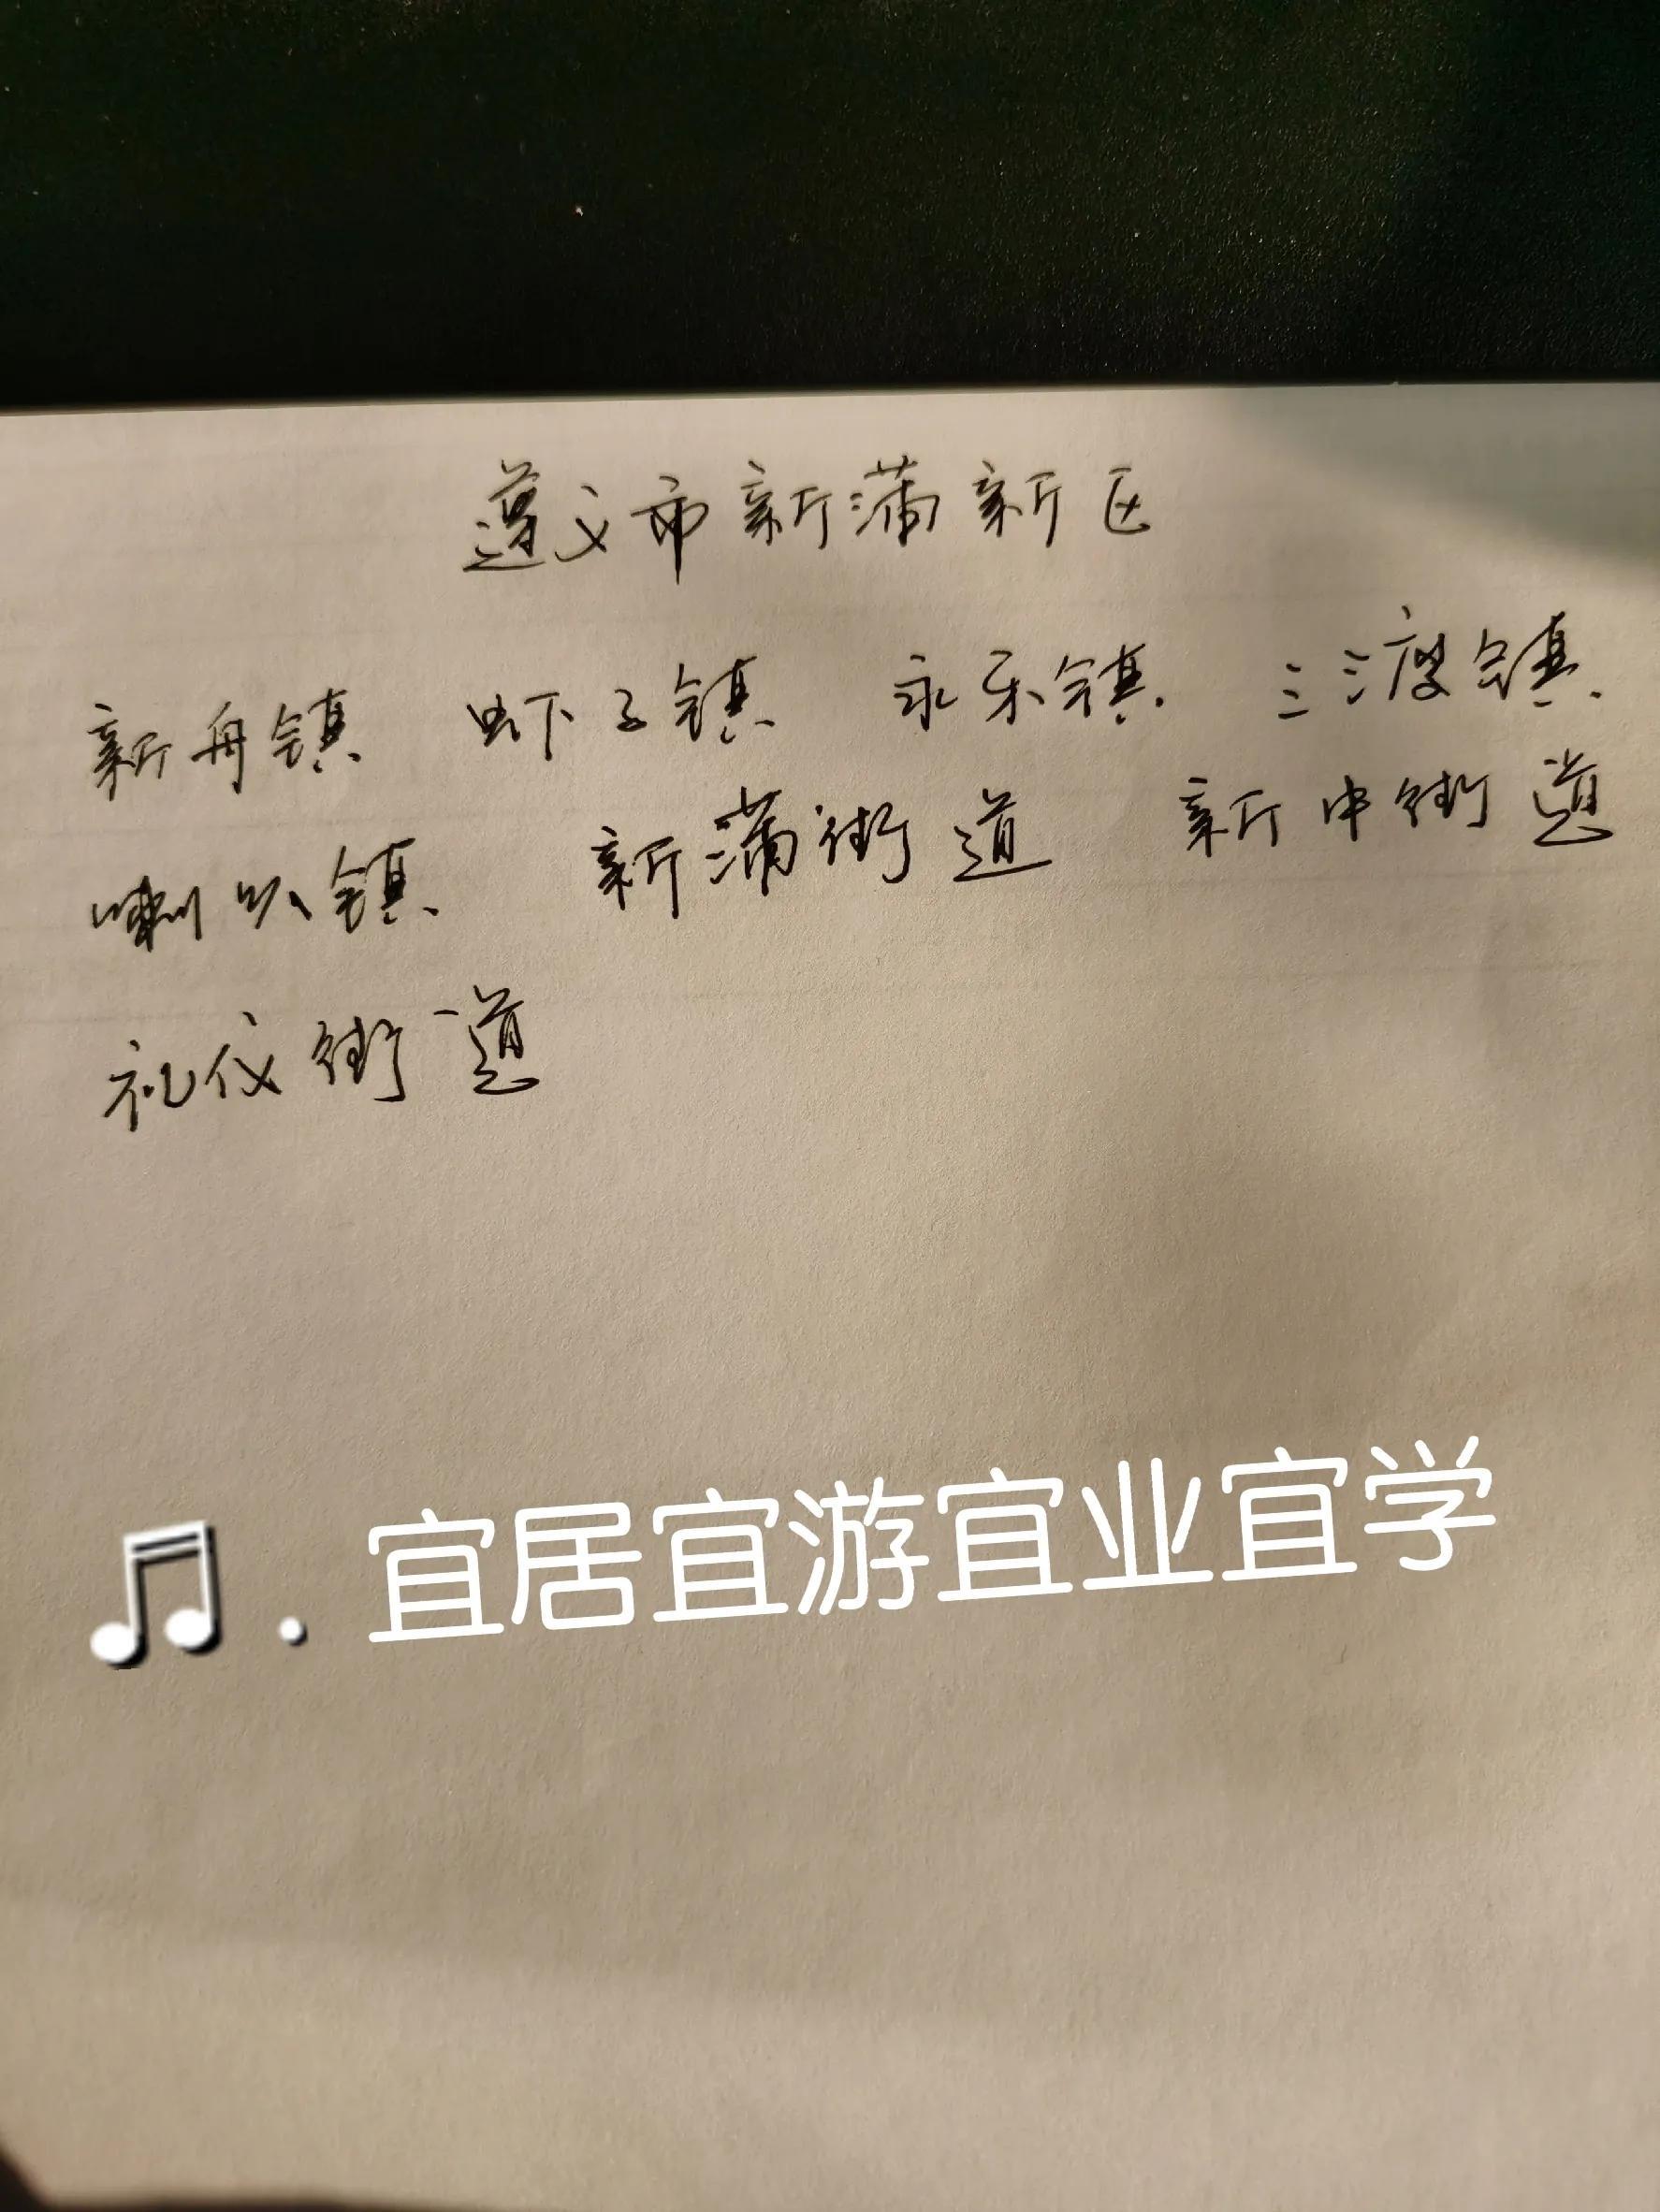 遵义市新蒲新区
新舟镇 虾子镇 永乐镇 三渡镇
喇叭镇 新蒲街道 新中街道
礼仪街道
♫. 宜居宜游宜业宜学